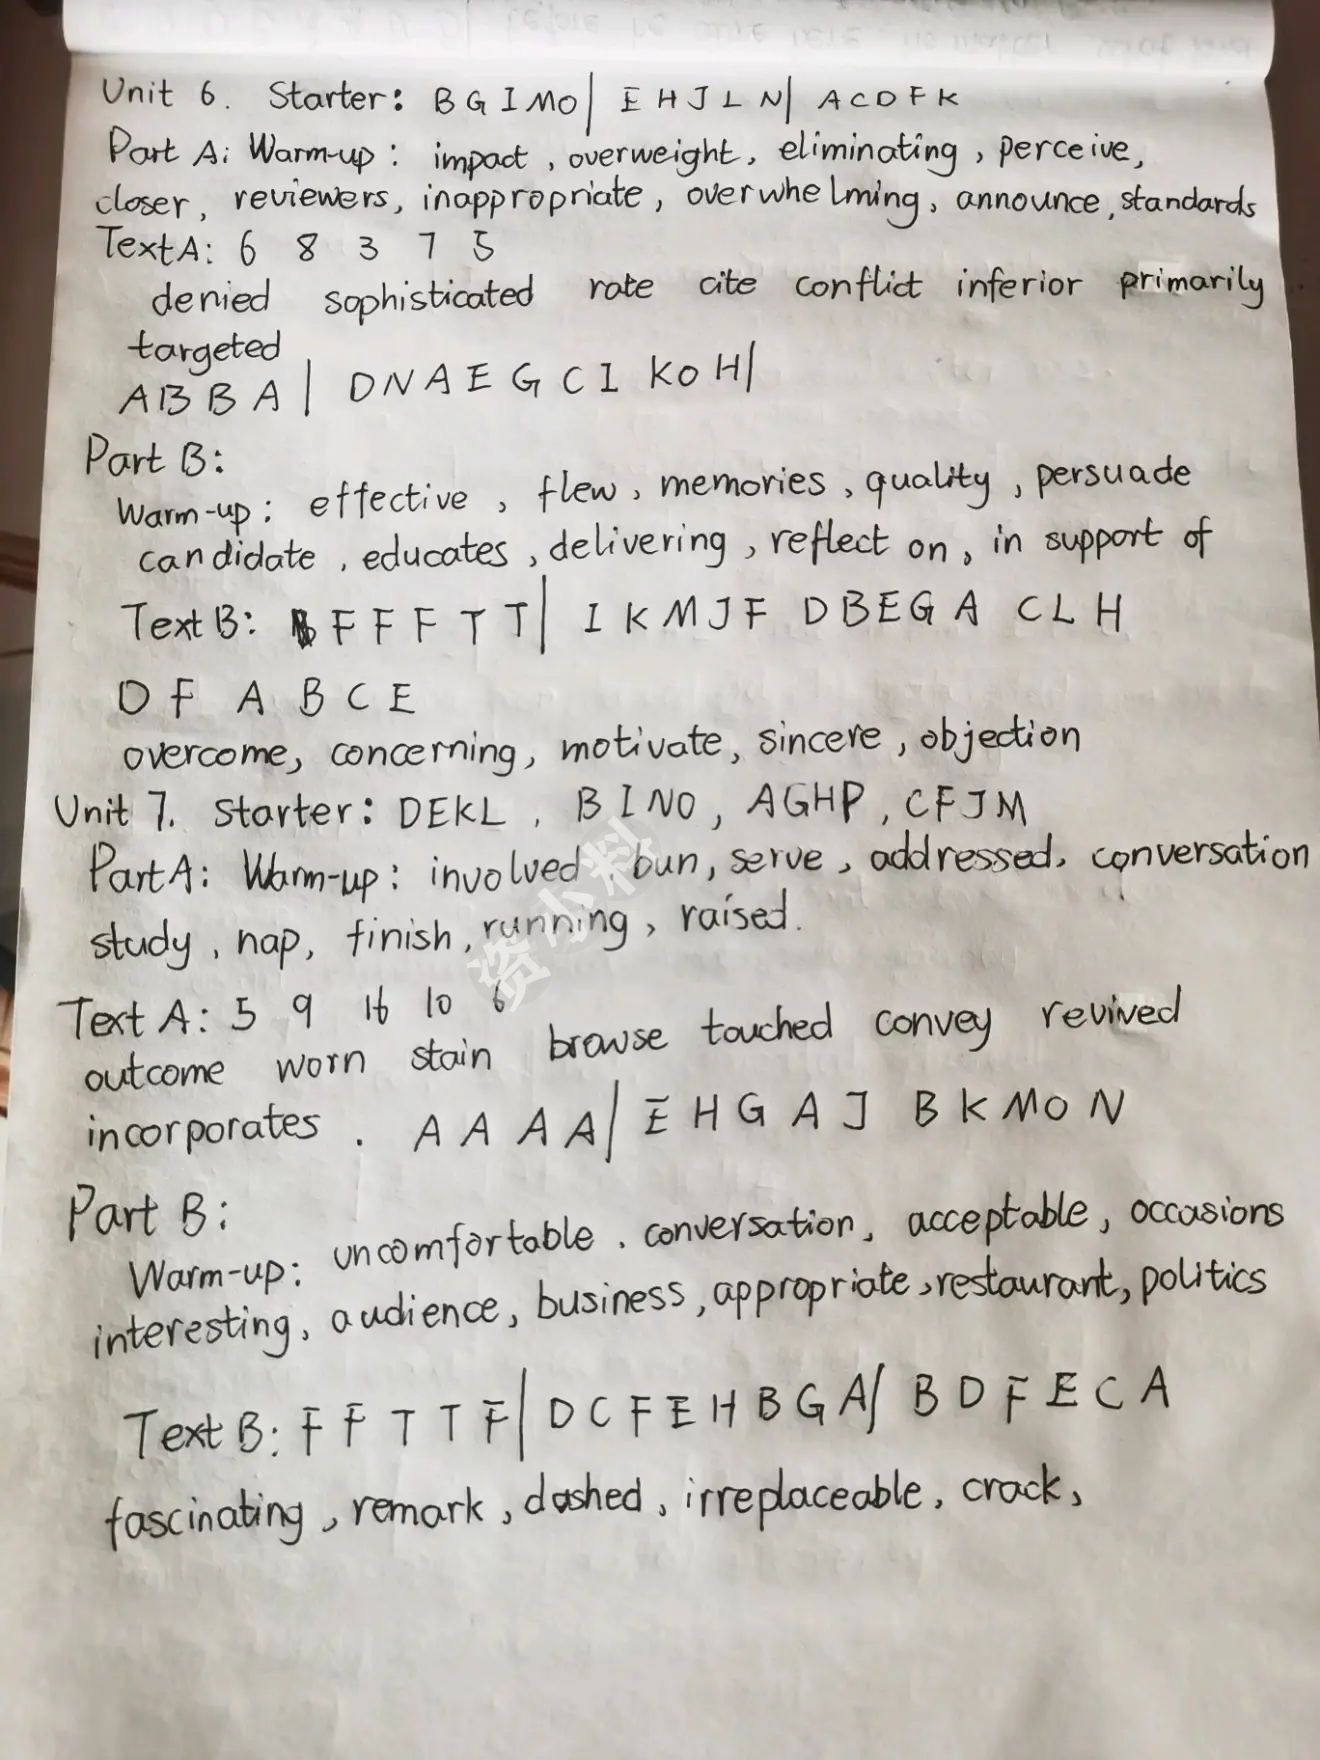 Unit 6. Starter: B G I M O | E H J L N | A C D F K
Part A: Warm-up: impact, overweight, eliminating, perceive,
closer, reviewers, inappropriate, overwhelming, announce, standards
Text A: 6 8 3 7 5
denied sophisticated rate cite conflict inferior primarily
targeted
A B B A | D N A E G C I K O H |
Part B:
Warm-up: effective, flew, memories, quality, persuade
candidate, educates, delivering, reflect on, in support of
Text B: F F F T T | I K M J F D B E G A C L H
D F A B C E
overcome, concerning, motivate, sincere, objection
Unit 7. Starter: DEKL, BINO, AGHP, CFJM
Part A: Warm-up: involved, bun, serve, addressed, conversation
study, nap, finish, running, raised.
Text A: 5 9 16 10 6
outcome worn stain browse touched convey revived
incorporates. A A A A | E H G A J B K M O N
Part B:
Warm-up: uncomfortable, conversation, acceptable, occasions
interesting, audience, business, appropriate, restaurant, politics
Text B: F F T T F | D C F E H B G A | B D F E C A
fascinating, remark, dashed, irreplaceable, crack,
资小料